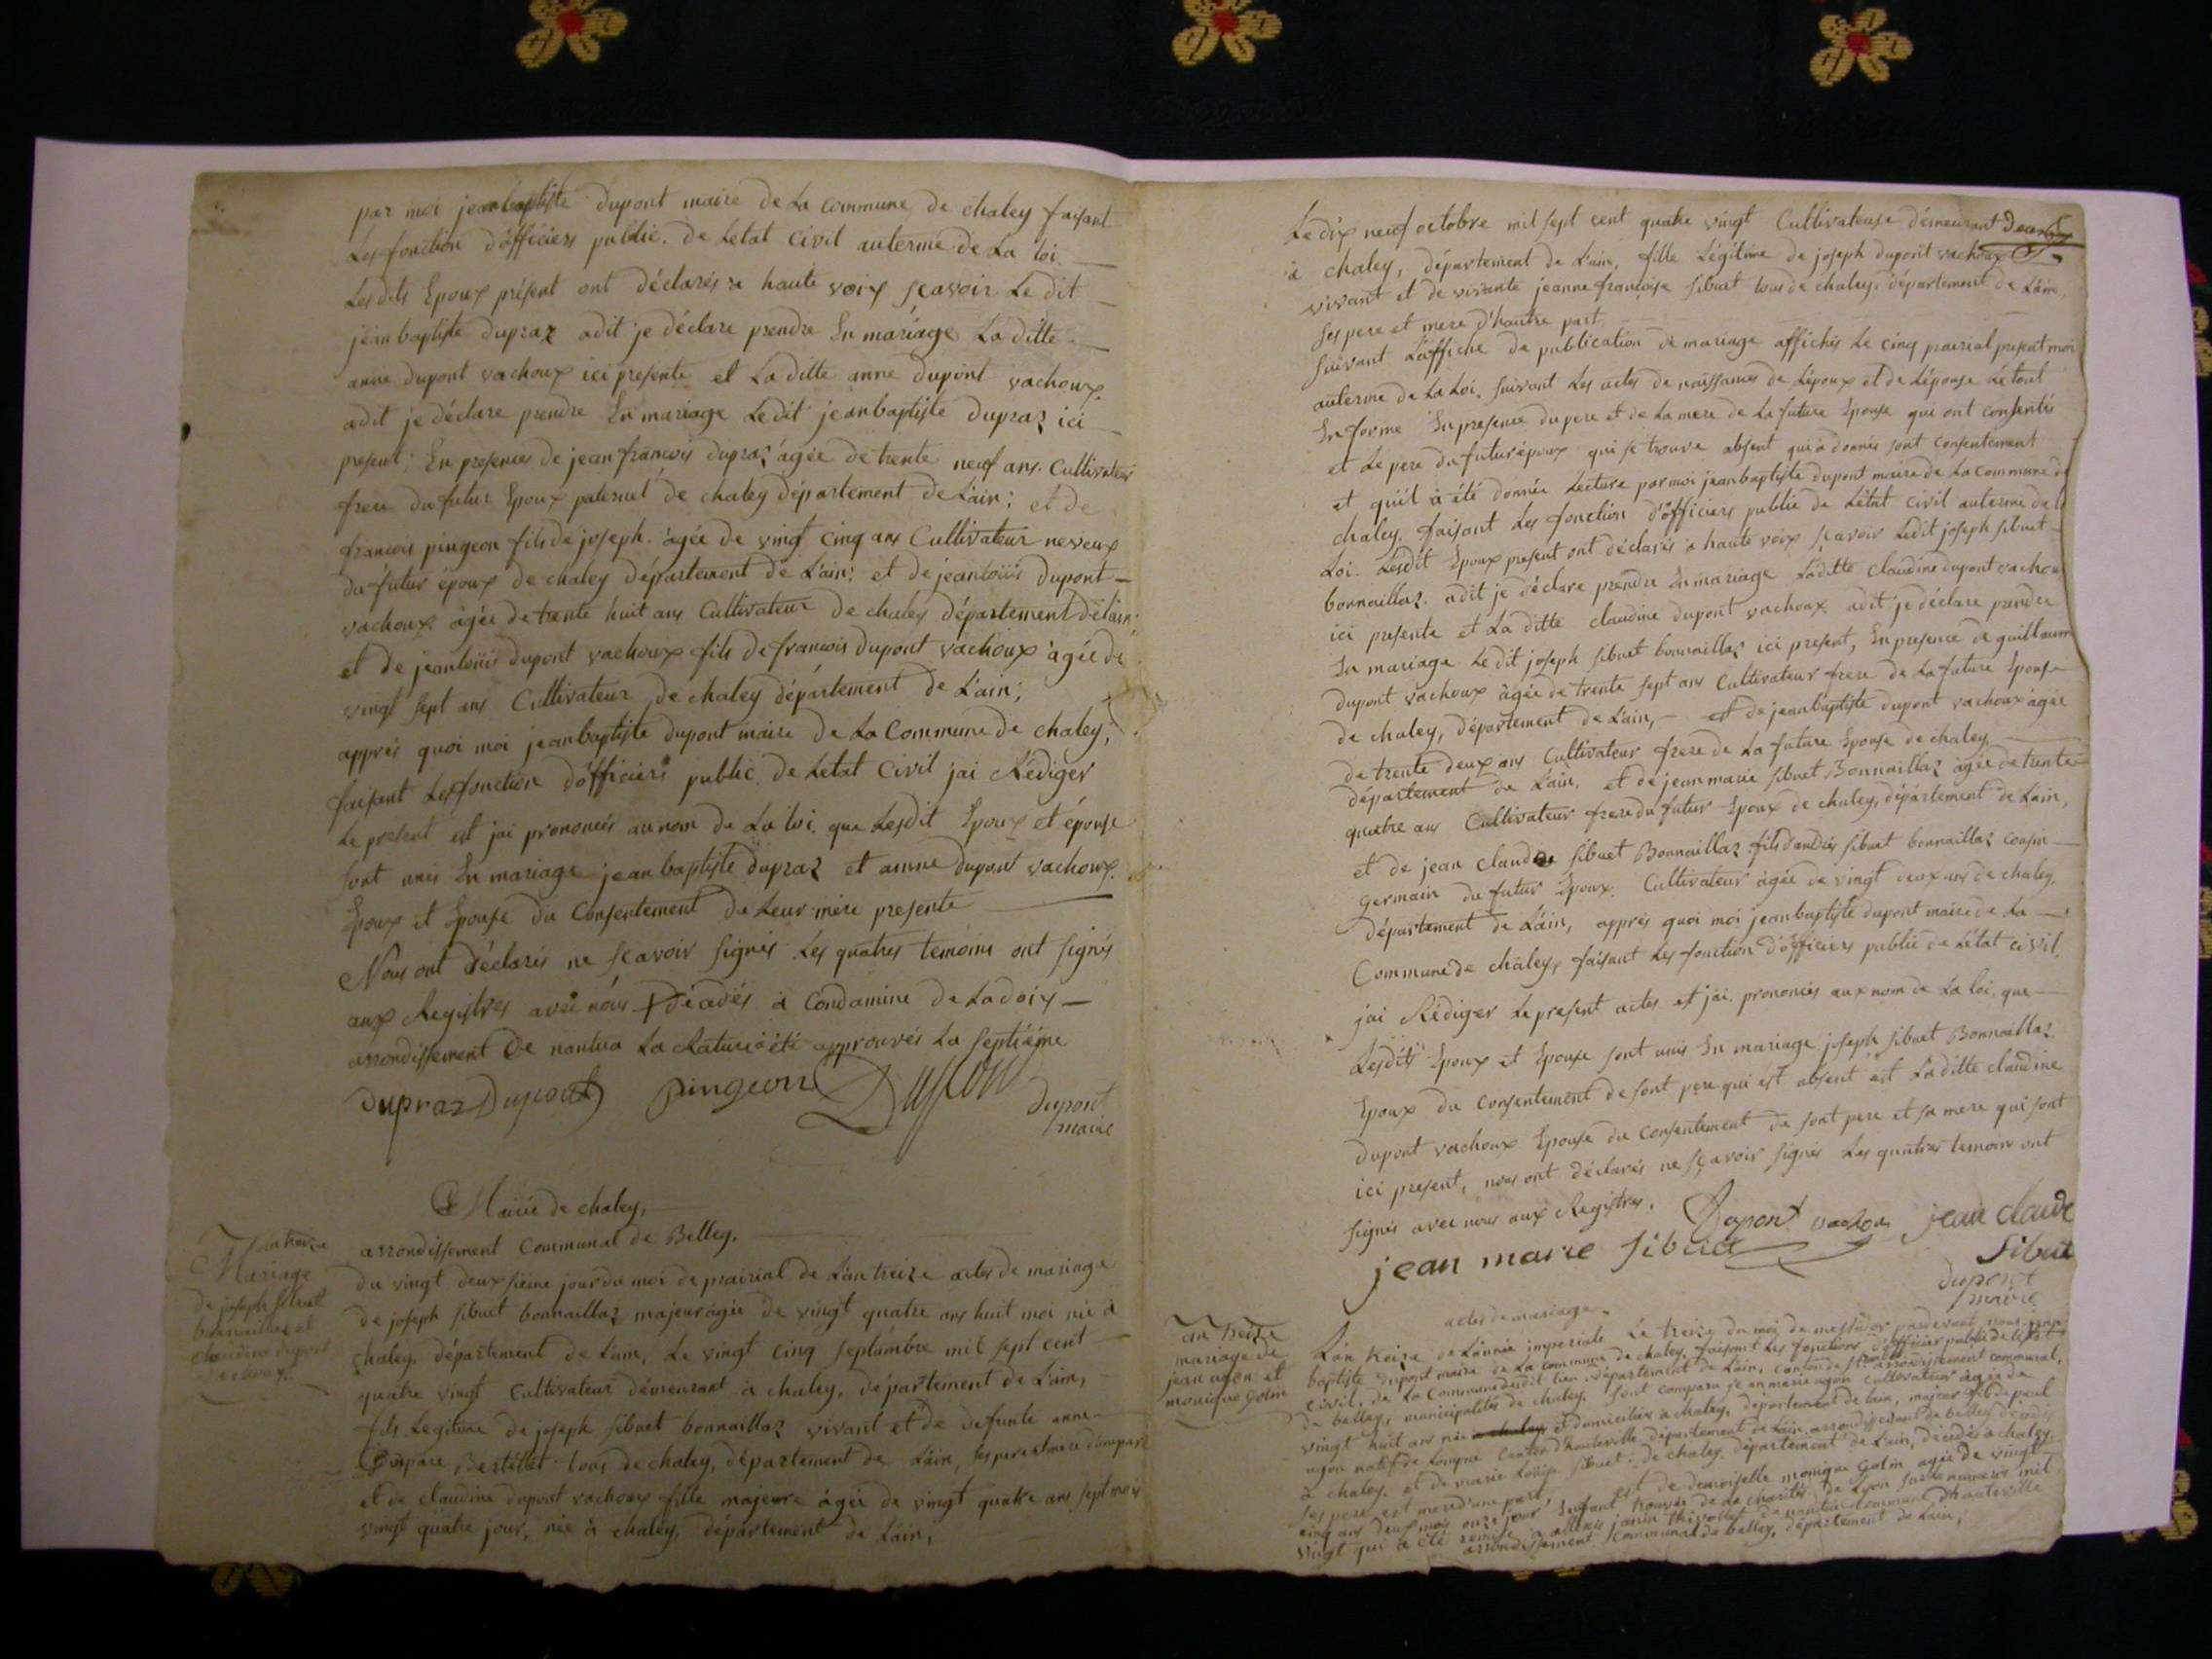 par moi jeanbaptiste dupont maire de La Commune de chaley faisant
Les fonction d'officiers public. de Letat Civil auterme de La loi.
Lesdits Epoux présent ont déclarés a haute voix sçavoir Le dit
jeanbaptiste dupraz adit je déclare prendre En mariage La ditte
anne dupont vachoux ici presente et La ditte anne dupont vachoux
adit je déclare prendre En mariage Ledit jeanbaptiste dupraz ici
present; En presences de jean francois dupraz âgée de trente neuf ans. Cultivateur
frere du futur Epoux paternel de chaley département de L'ain; et de
francois pingeon fils de joseph. âgée de vingt cinq ans Cultivateur neveux
du futur époux de chaley département de L'ain; et de jeanloüis dupont
vachoux. âgée de trente huit ans Cultivateur de chaley département de lain;
et de jeanloüis dupont vachoux fils de francois dupont vachoux âgée de
vingt sept ans Cultivateur de chaley département de L'ain;
apprés quoi moi jeanbaptiste dupont maire de La Commune de chaley,
faisant Les fonction d'officiers public. de Letat Civil jai Rédiger
Le present et jai prononcés aunom de La loi. que Lesdit Epoux et épouse
sont unis En mariage jeanbaptiste dupraz et anne dupont vachoux.
Epoux et Epouse du Consentement de Leur mére presente
Nous ont déclarés ne scavoir signés Les quatres temoins ont signés
aux Registres avec nous décédés à Condamine de Ladoix
arrondissement De nantua La Rature a été approuvés La septiéme
dupraz Dupont pingeon Dupont
dupont
maire
Mairie de chaley,
arrondissement Communal de Belley.
an treize
Mariage
de joseph sibuet
bonnaillaz et
claudine dupont
vachoux
du vingt deuxsieme jour du moi de prairial de L'an treize actes de mariage
de joseph sibuet bonnaillaz majeur âgée de vingt quatre ans huit moi née à
chaley. département de L'ain, Le vingt cinq septambre mil sept cent
quatre vingt Cultivateur demeurant à chaley, département de L'ain,
fils Legitime de joseph sibuet bonnaillaz vivant et de defunte anne
Bertellet tous de chaley, département de L'ain, ses pere et mere dunepart
et de claudine dupont vachoux fille majeure âgée de vingt quatre ans sept mois
vingt quatre jour, née à chaley, département de L'ain,
Le dix neuf octobre mil sept cent quatre vingt Cultivateuse démeurant
à chaley, département de L'ain, fille Légitime de joseph dupont vachoux
vivant et de vivante jeanne françoise sibuet tous de chaley, département de L'ain,
ses pere et mere d'hautre part.
suivant L'affiche de publication de mariage affichés Le cinq prairial present moi
auterme de La Loi. suivant Les actes de naissances de L'époux et de L'épouse Le tout
En forme En presence du pere et de La mere de La future Epouse qui ont consentis
et Le pere du futur époux qui se trouve absent qui à donnée sont consentement
et qu'il à été donnée Lecture par moi jeanbaptiste dupont maire de La commune de
chaley, faisant Les fonction d'officiers public de L'état civil auterme de la
Loi. Lesdit Epoux present ont déclarés a haute voix sçavoir Ledit joseph sibuet
bonnaillaz. adit je déclare prendre En mariage Laditte claudine dupont vachoux
ici presente et La ditte claudine dupont vachoux. adit je déclare prendre
En mariage Le dit joseph sibuet bonnaillaz ici present, En presence de guillaume
dupont vachoux âgée de trente sept ans Cultivateur frere de La future Epouse
de chaley, département de L'ain, et de jeanbaptiste dupont vachoux âgée
de trente deux ans Cultivateur frere de La future Epouse de chaley.
département de L'ain, et de jean marie sibuet Bonnaillaz âgée de trente
quatre ans Cultivateur frere du futur Epoux de chaley, département de L'ain,
et de jean claude sibuet Bonnaillaz fils d'andrés sibuet bonnaillaz cousin
germain du futur Epoux. Cultivateur âgée de vingt deux ans de chaley,
département de L'ain, apprés quoi moi jeanbaptiste dupont maire de La
Commune de chaley, faisant Les fonction d'officiers public de L'état civil,
jai Rédiger Le present actes et jai. prononcés aux nom de La loi, que
Lesdits Epoux et Epouse sont unis En mariage joseph sibuet Bonnaillaz
Epoux du consentement de sont pere qui est absent et Laditte claudine
dupont vachoux Epouse du consentement de sont pere et sa mere qui sont
ici present, nous ont déclarés ne sçavoir signés Les quatres temoins ont
signés avec nous aux Registres.
Dupont vachou jean claude
jean marie sibuet sibuet
dupont
maire
actes de mariage.
an treize
mariage de
jean ugon et
monique Golin
L'an treize de L'année imperiale Le treize du moi de messidor pardevant nous jean
baptiste dupont maire de La commune de chaley, faisant Les fonctions d'officier public de letat
civil. de La Commune dudit Lieu département de L'ain, canton de arrondissement communal,
de belley, municipalités de chaley. sont comparu jeanmarie ugon cultivateur âgée de
vingt huit ans née a chaley et domiciliée a chaley, département de lain, majeur fils de paul
ugon natif de Longue Canton d'hauteville département de L'ain arrondissement de belley décédés
à chaley. et de marie Louise sibuet. de chaley. département de L'ain, décédés à chaley.
ses pere et mere d'une part. et de demoiselle monique Golin âgée de vingt
cinq ans deux mois onze jour Enfant trouvée de La charités de Lyon sur Le numeros mil
vingt qui a été remise a janin thivollet de nantuis Commune d'hauteville
arrondissement Communal de belley, département de Lain,